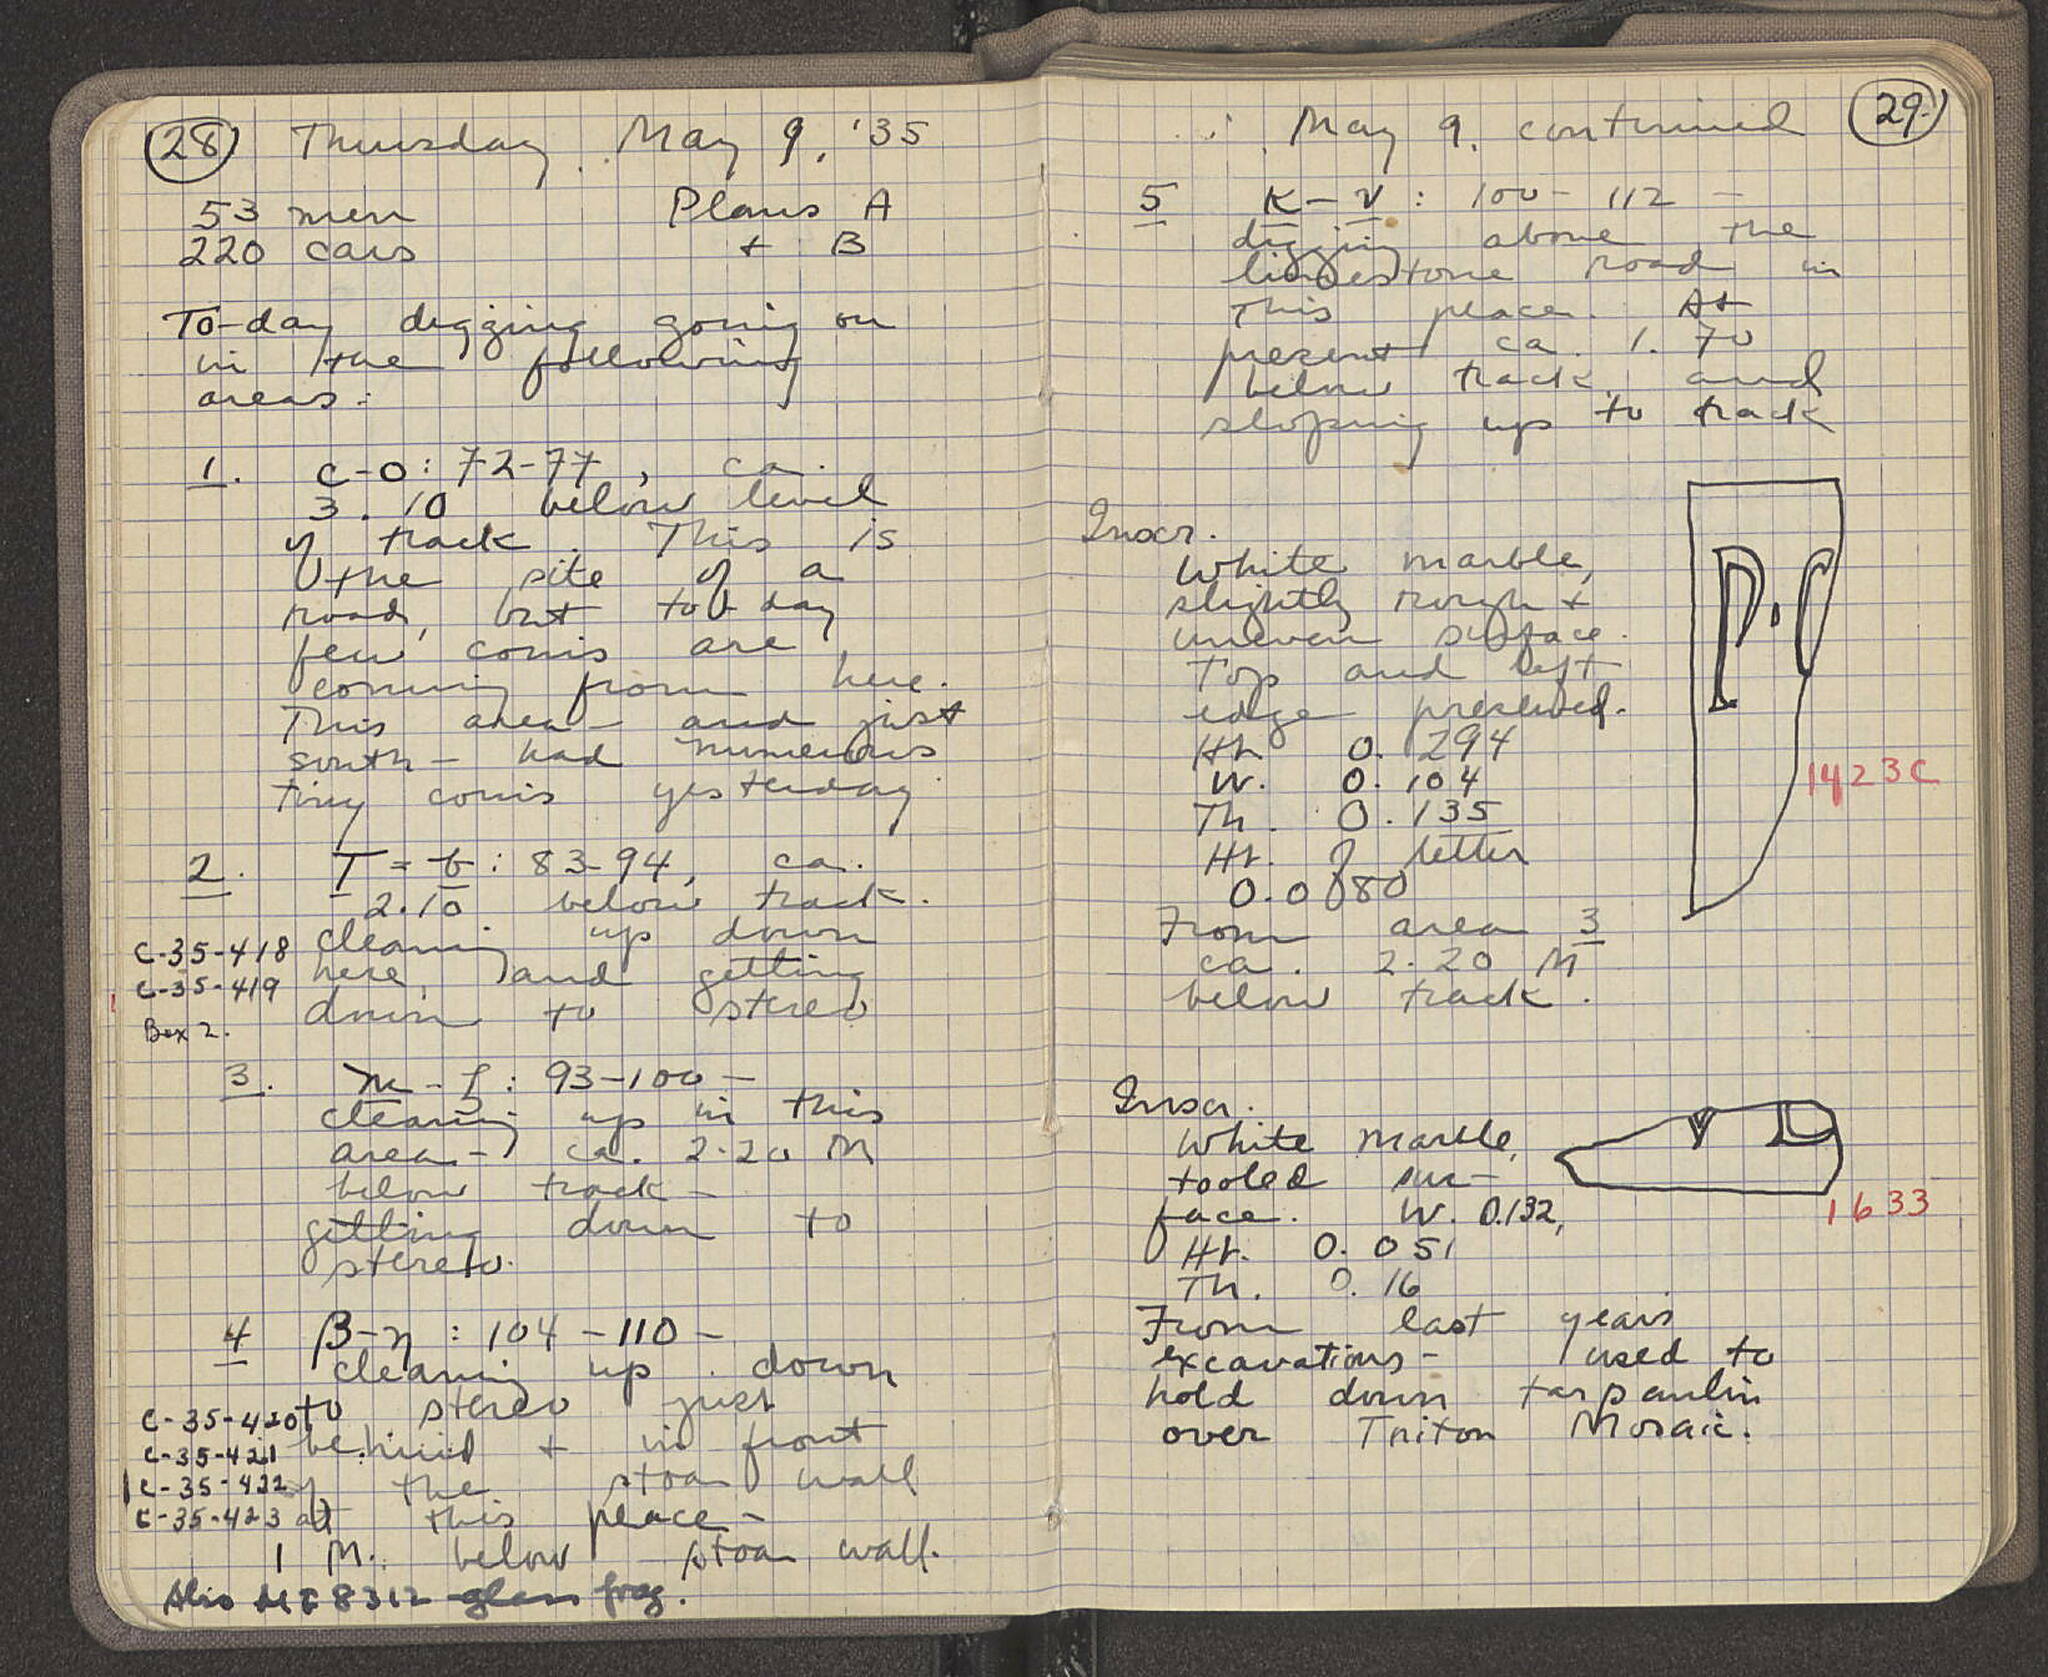 28 Thursday May 9, '35
53 men Plans A
220 cars + B
To-day digging going on
in the following
areas:
1. C-O: 72-77, ca.
3.10 below level
of track. This is
the site of a
road, but to-day
few coins are
coming from here.
This area - and just
south - had numerous
tiny coins yesterday.
2. 83-94, ca.
2.10 below track.
cleaning up down
here, and getting
down to stereo
C-35-418
C-35-419
Box 2.
3. 93-100 -
cleaning up in this
area - ca. 2.20 M
below track -
getting down to
stereo.
4 β-η: 104-110 -
cleaning up down
to stereo just
behind + in front
of the stoa wall
at this place -
1 M. below stoa wall.
C-35-420
C-35-421
C-35-422
C-35-423
Also MF 8312 glass frag.
May 9, continued 29
5 K-ν: 100-112 -
digging above the
limestone road in
this place. At
present ca. 1.70
below track, and
sloping up to track
Inscr.
White marble,
slightly rough +
uneven surface.
Top and left
edge preserved.
Ht. 0.294
W. 0.104
Th. 0.135
Ht. of letter
0.080
From area 3
ca. 2.20 M
below track.
P.C
1423C
Inscr.
White marble,
tooled sur-
face. W. 0.132,
Ht. 0.051
Th. 0.16
From last years
excavations - used to
hold down tarpaulin
over Triton Mosaic.
1633